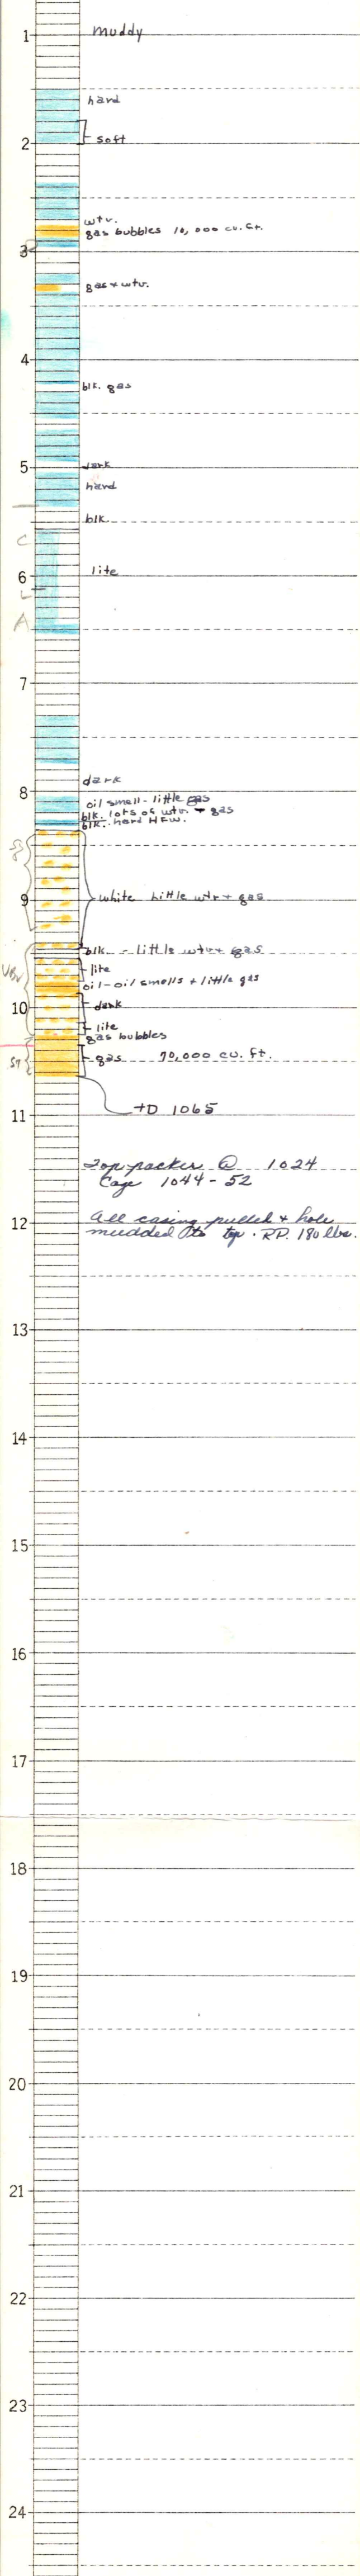 1 muddy
hard
soft
2
wtr.
gas bubbles 10,000 cu.ft.
3
gas & wtr.
4
blk. gas
5 dark
hard
blk.
C
6 lite
L
A
7
dark
8
oil smell - little gas
blk. lots of wtr. + gas
blk. hard H.F.W.
9 white little wtr + gas
blk. - little wtr + gas
lite
oil - oil smells + little gas
10 dark
lite
gas bubbles
ST gas 70,000 cu. ft.
11 TD 1065
Top packer @ 1024
Cage 1044-52
12 All casing pulled & hole
mudded to top. RP. 180 lbs.
13
14
15
16
17
18
19
20
21
22
23
24